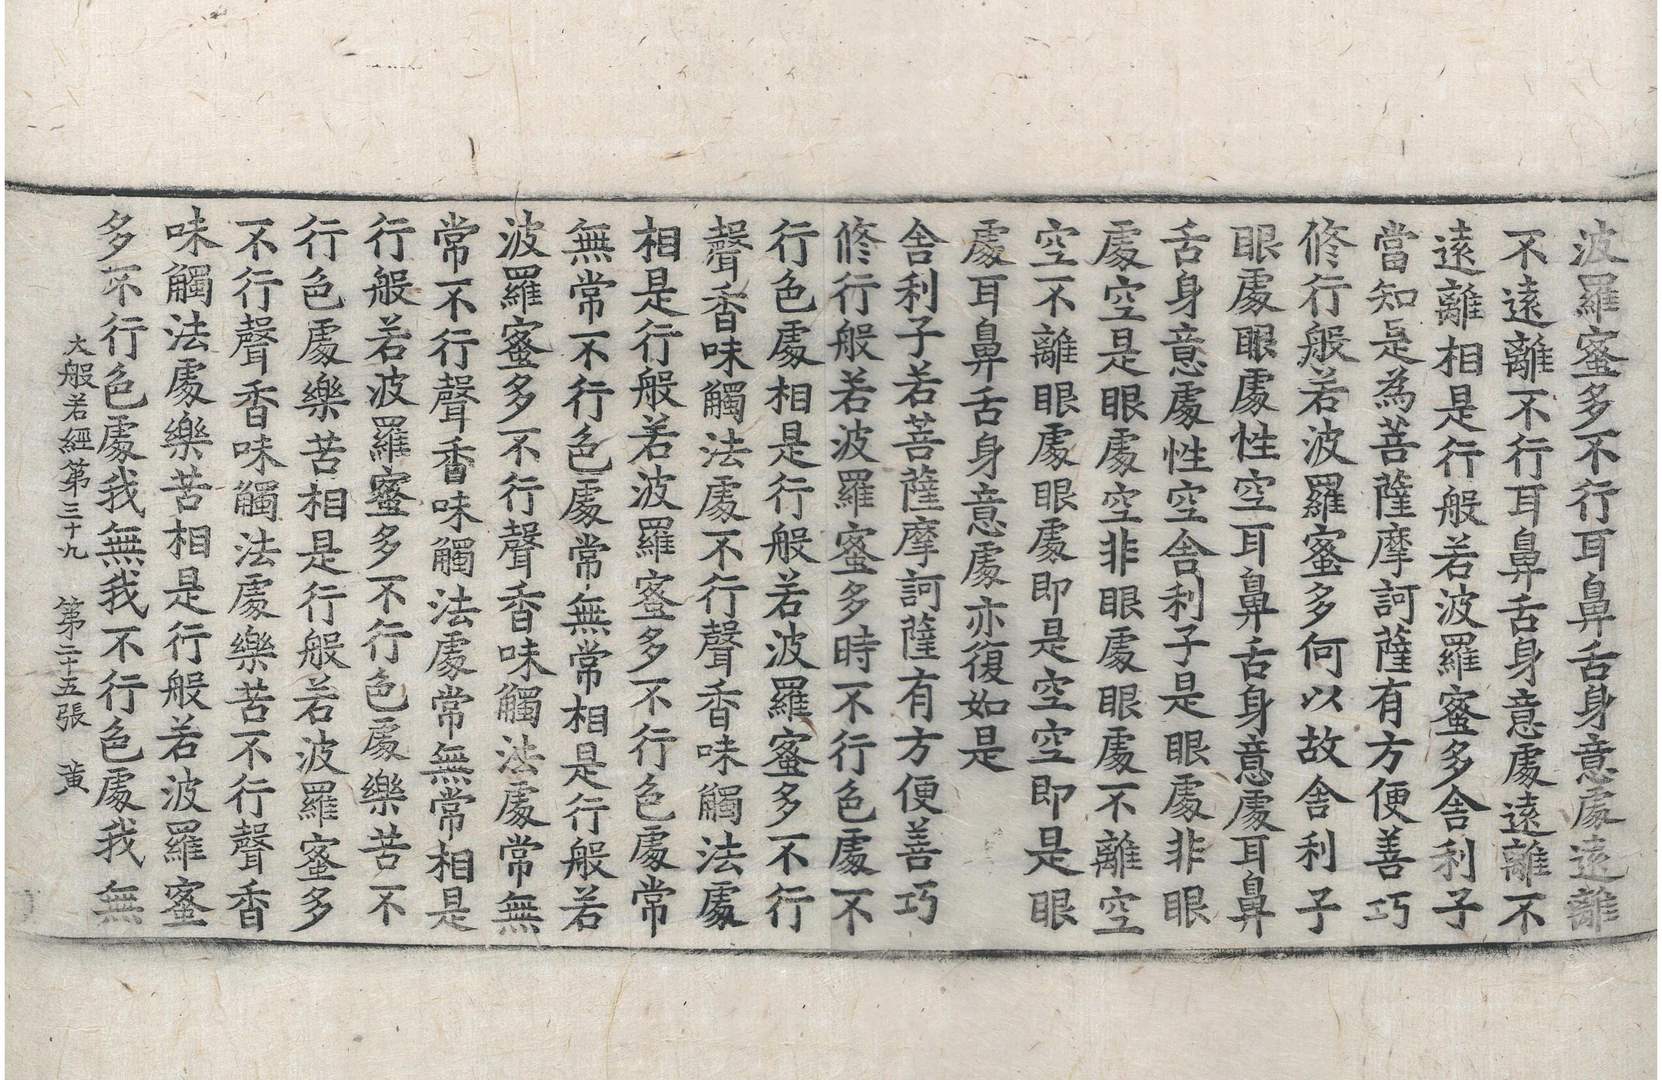 波羅蜜多不行耳鼻舌身意處遠離
不遠離不行耳鼻舌身意處遠離不
遠離相是行般若波羅蜜多舍利子
當知是為菩薩摩訶薩有方便善巧
修行般若波羅蜜多何以故舍利子
眼處眼處性空耳鼻舌身意處耳鼻
舌身意處性空舍利子是眼處非眼
處空是眼處空非眼處眼處不離空
空不離眼處眼處即是空空即是眼
處耳鼻舌身意處亦復如是
舍利子若菩薩摩訶薩有方便善巧
修行般若波羅蜜多時不行色處不
行色處相是行般若波羅蜜多不行
聲香味觸法處不行聲香味觸法處
相是行般若波羅蜜多不行色處常
無常不行色處常無常相是行般若
波羅蜜多不行聲香味觸法處常無
常不行聲香味觸法處常無常相是
行般若波羅蜜多不行色處樂苦不
行色處樂苦相是行般若波羅蜜多
不行聲香味觸法處樂苦不行聲香
味觸法處樂苦相是行般若波羅蜜
多不行色處我無我不行色處我無
大般若經第三十九 第二十五張 黃